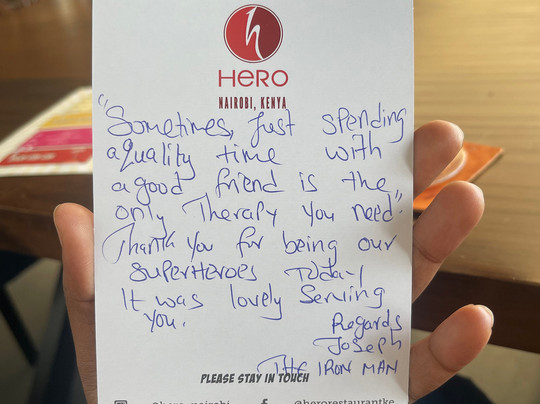 h
HERO
NAIROBI, KENYA
"Sometimes, Just spending
a quality time with
a good friend is the
only Therapy you need".
Thank you for being our
superheroes Today
It was lovely Serving
you.
Regards
Joseph
THE IRON MAN
PLEASE STAY IN TOUCH
@hero_nairobi @herorestaurantke